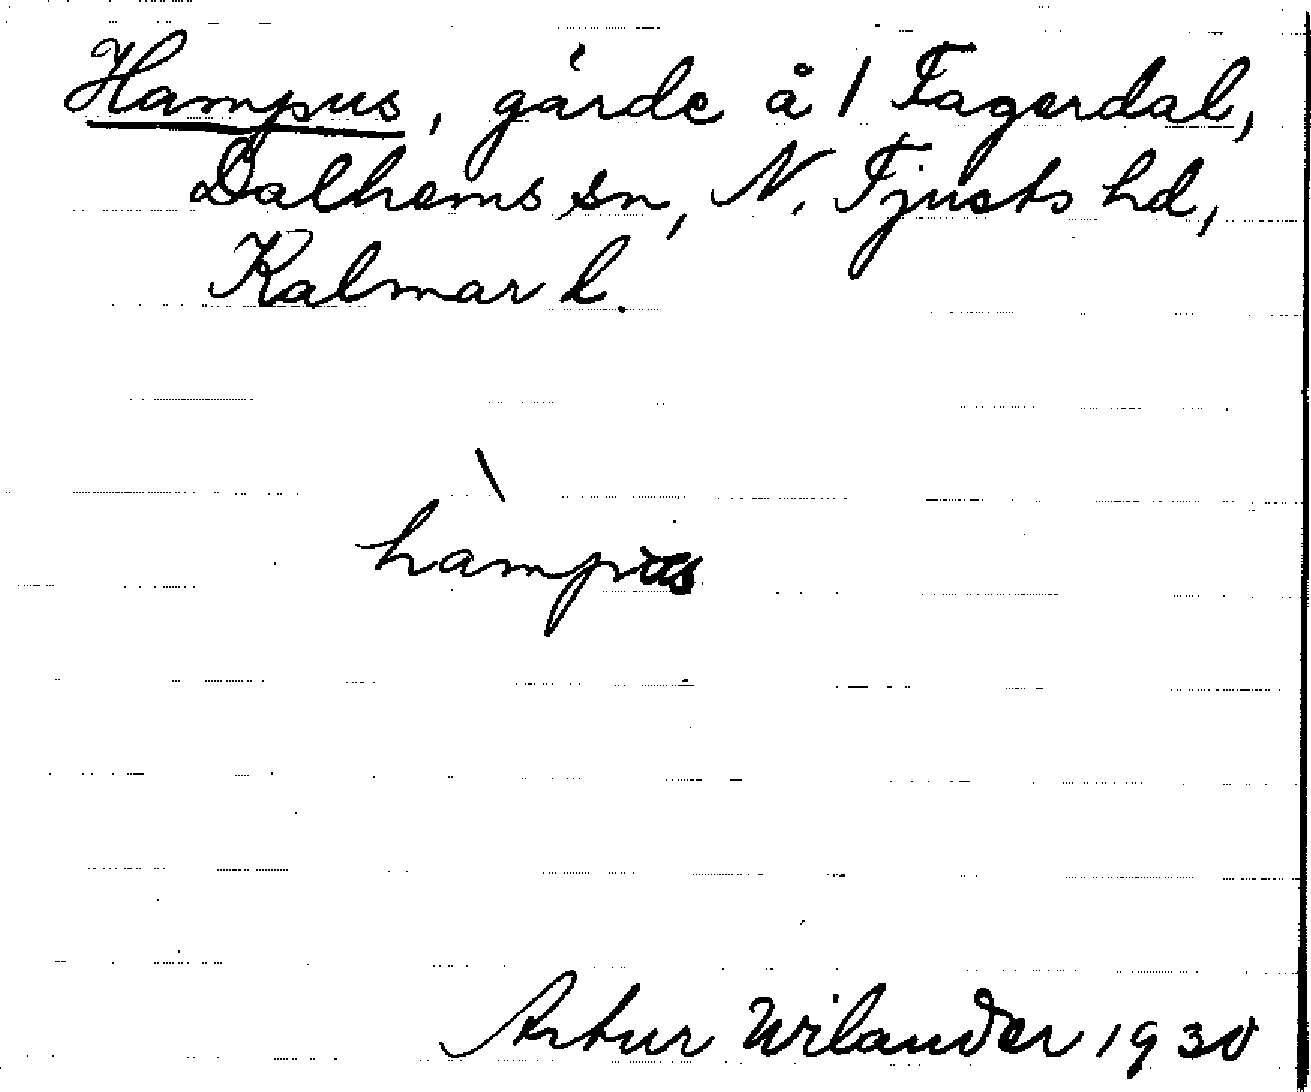 Hampus, gärde å 1 Fagerdal,
Dalhems sn, N. Tjusts hd,
Kalmar l.
hàmpus
Artur Wilander 1930